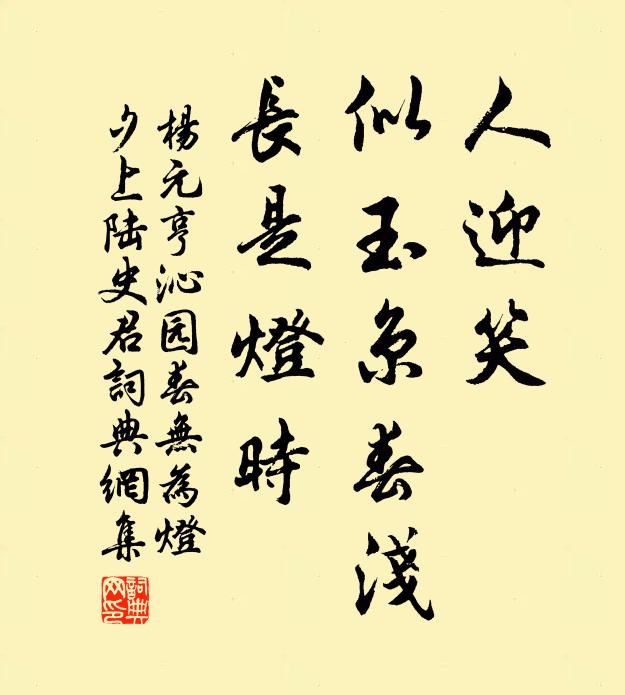 人迎笑
似玉京春淺
長是燈時
楊元亨沁园春無為燈
夕上陆史君詞典網集
詞典网印